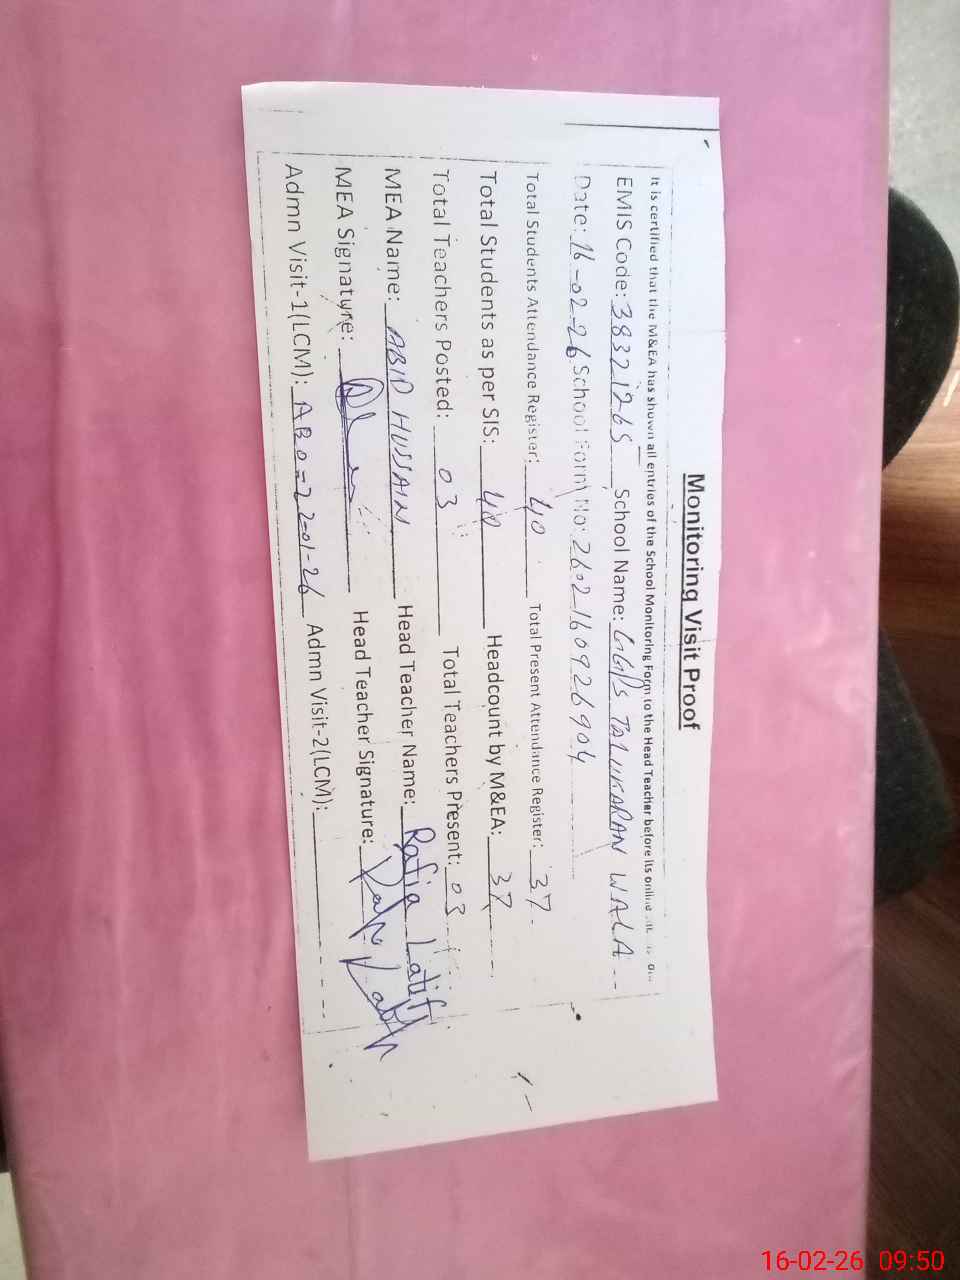 Monitoring Visit Proof
It is certified that the M&EA has shown all entries of the School Monitoring Form to the Head Teacher before its online
EMIS Code: 38321265 School Name: GGPS TALUKARAN WALA
Date: 16-02-26 School Form No: 2602160926904
Total Students Attendance Register: 40 Total Present Attendance Register: 37
Total Students as per SIS: 40 Headcount by M&EA: 37
Total Teachers Posted: 03 Total Teachers Present: 03
MEA Name: ABID HUSSAIN Head Teacher Name: Rafia Latif
MEA Signature: Head Teacher Signature:
Admn Visit-1(LCM): AEO-22-01-26 Admn Visit-2(LCM):
16-02-26 09:50